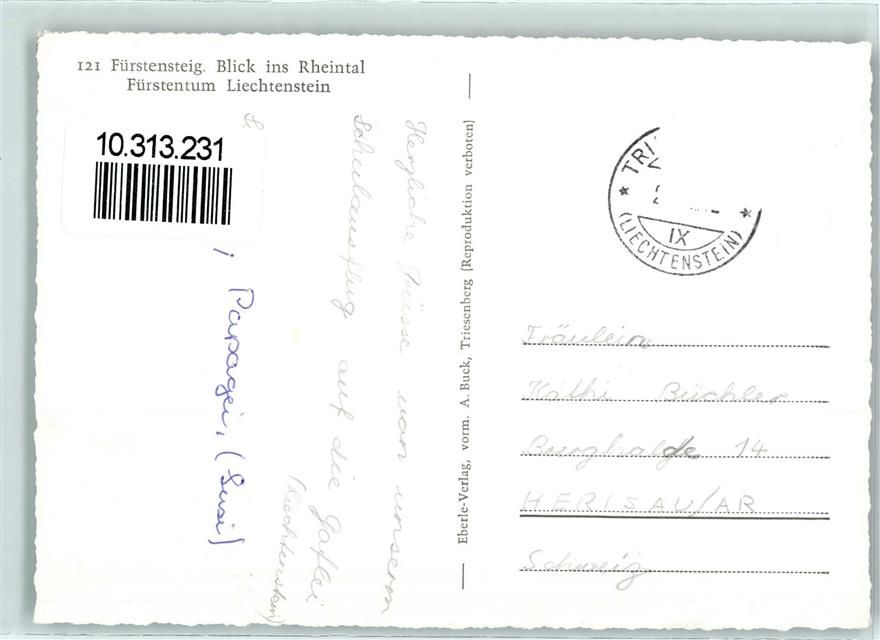 121 Fürstensteig. Blick ins Rheintal
Fürstentum Liechtenstein
10.313.231
Herzliche Grüsse von unserem
Schulausflug auf die Gaflei
(Liechtenstein)
Papagei, (Susi)
Eberle-Verlag, vorm. A. Buck, Triesenberg [Reproduktion verboten]
TRI
IX
(LIECHTENSTEIN)
Fräulein
Käthi Büchler
Burghalde 14
HERISAU/AR
Schweiz